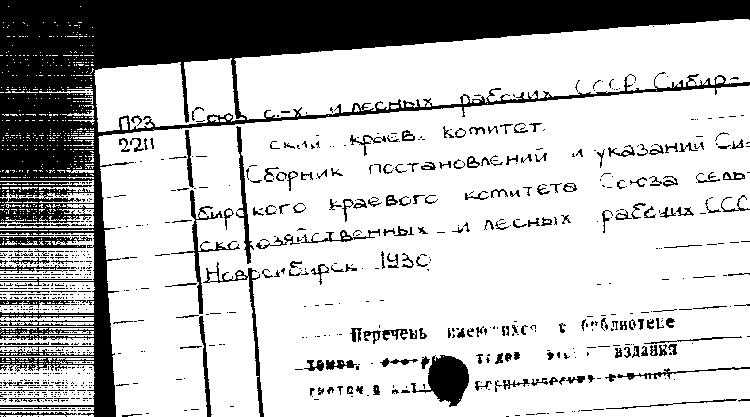 П23
2211
Союз с.-х. и лесных рабочих СССР. Сибир-
ский краев. комитет.
Сборник постановлений и указаний Си-
бирского краевого комитета Союза сель-
скохозяйственных и лесных рабочих ССС
Новосибирск 1930
Перечень имеющихся в библиотеке
издания